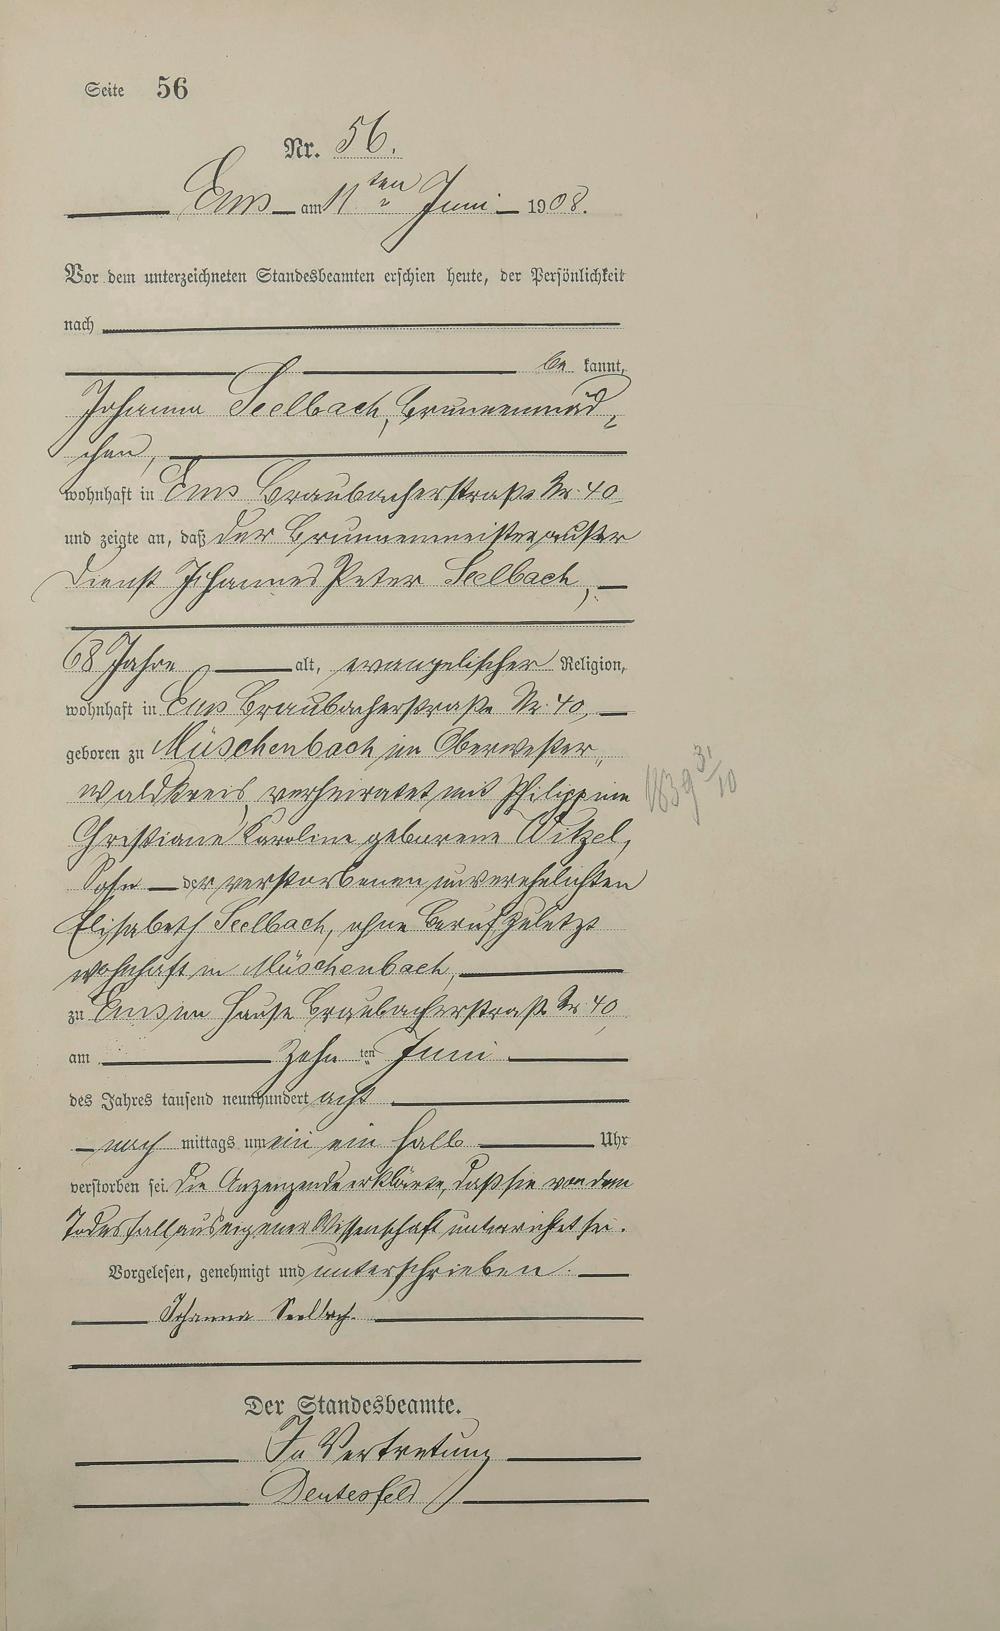 Seite 56
Nr. 56.
Ems am 11ten Juni 1908.
Vor dem unterzeichneten Standesbeamten erschien heute, der Persönlichkeit
nach
be kannt,
Johanna Seelbach, Brunnenmäd-
chen,
wohnhaft in Ems Braubacherstraße Nr. 40
und zeigte an, daß der Brunnenmeister außer
Dienst Johannes Peter Seelbach,
68 Jahre alt, evangelischer Religion,
wohnhaft in Ems Braubacherstraße Nr. 40,
geboren zu Müschenbach im Oberwester-
waldkreis, verheiratet mit Philippine
1839 31/10
Christiane Karoline geborene Witzel,
Sohn der verstorbenen unverehelichten
Elisabeth Seelbach, ohne Beruf zuletzt
wohnhaft in Müschenbach,
zu Ems im Hause Braubacherstraße Nr. 40
am Zehn ten Juni
des Jahres tausend neunhundert acht
nach mittags um ein ein halb Uhr
verstorben sei. Die Anzeigende erklärte, daß sie von dem
Todesfall aus eigener Wissenschaft unterrichtet sei.
Vorgelesen, genehmigt und unterschrieben.
Johanna Seelbach.
Der Standesbeamte.
In Vertretung